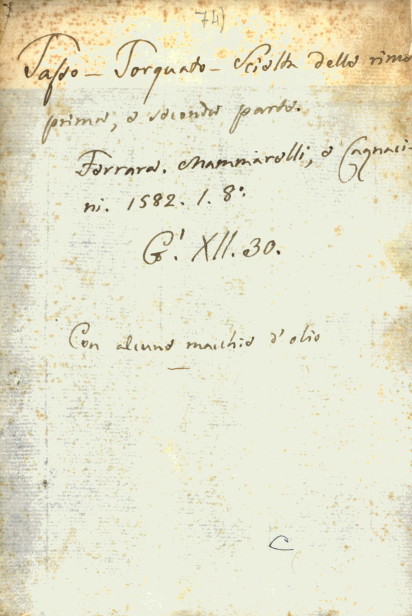 74)
Tasso – Torquato – Scielta delle rime
prima, e seconda parte.
Ferrara. Mammarelli, e Cagnaci-
ni. 1582. 1. 8.°
G.' XII. 30.
Con alcune macchie d'olio
C